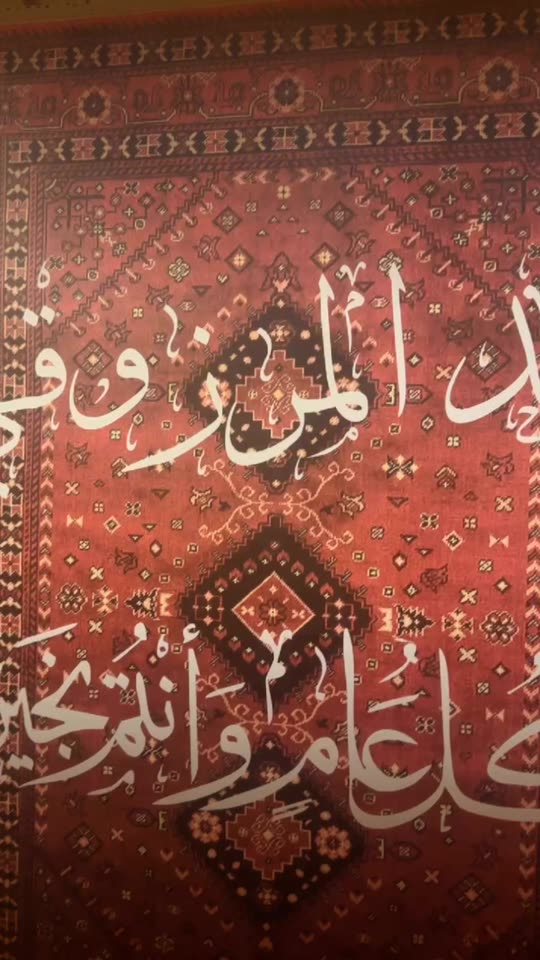 المرزوقي
كُل عَامٍ وَأنتُم بخَير